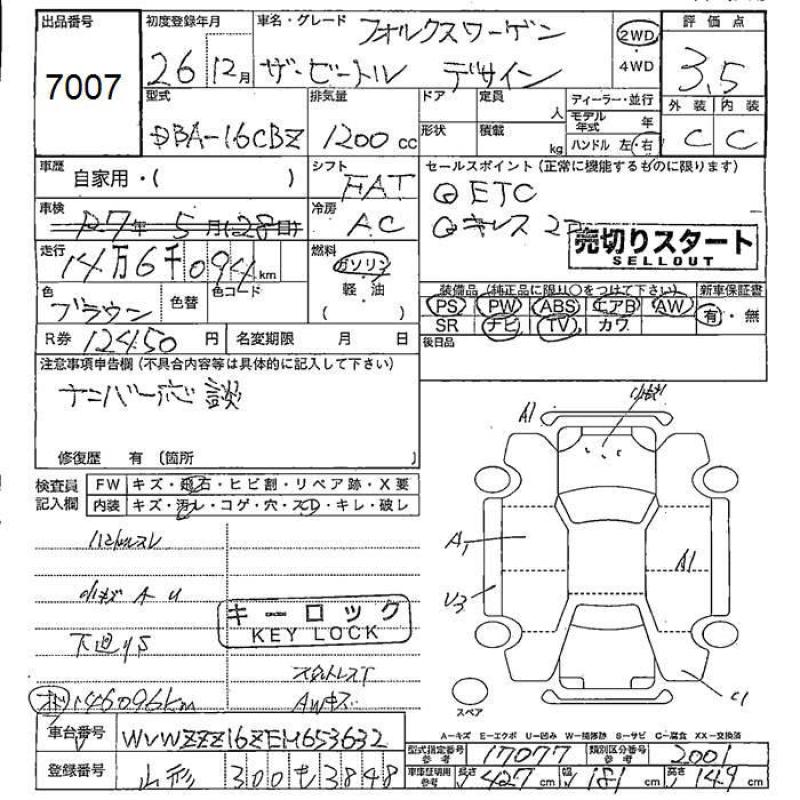 出品番号
7007
初度登録年月
26 12月
車名・グレード
フォルクスワーゲン
ザ・ビートル デザイン
2WD
4WD
評価点
3.5
外装 内装
C C
型式
DBA-16CBZ
排気量
1200 cc
ドア
定員 人
形状
積載 kg
ディーラー・並行
モデル年式 年
ハンドル 左・右
車歴
自家用・( )
シフト
FAT
セールスポイント(正常に機能するものに限ります)
ETC
キーレス
売切りスタート
SELLOUT
車検
R7年 5月(28日)
冷房
AC
走行
14万6千094km
燃料
ガソリン
軽・油
( )
色
ブラウン
色替
色コード
装備品(純正品に限り○をつけて下さい)
PS PW ABS エアB AW
SR ナビ TV カワ
新車保証書
有・無
R券 12450円
名変期限 月 日
後日品
注意事項申告欄(不具合内容等は具体的に記入して下さい)
ナンバー応談
修復歴 有(箇所 )
検査員記入欄
FW キズ・飛石・ヒビ割・リペア跡・X要
内装 キズ・汚レ・コゲ・穴・スレ・キレ・破し
小キズ A U
下廻りS
キーロック
KEY LOCK
146096km
AWキズ
A1
A1
A1
U3
スペア
A-キズ E-エクボ U-凹み W-補修跡 S-サビ C-腐食 XX-交換済
車台番号
WVWZZZ16ZEM653632
登録番号
山形 300 も 3848
型式指定番号 参考
17077
類別区分番号 参考
2001
車庫証明用 参考
長さ 427cm 幅 181cm 高さ 149cm